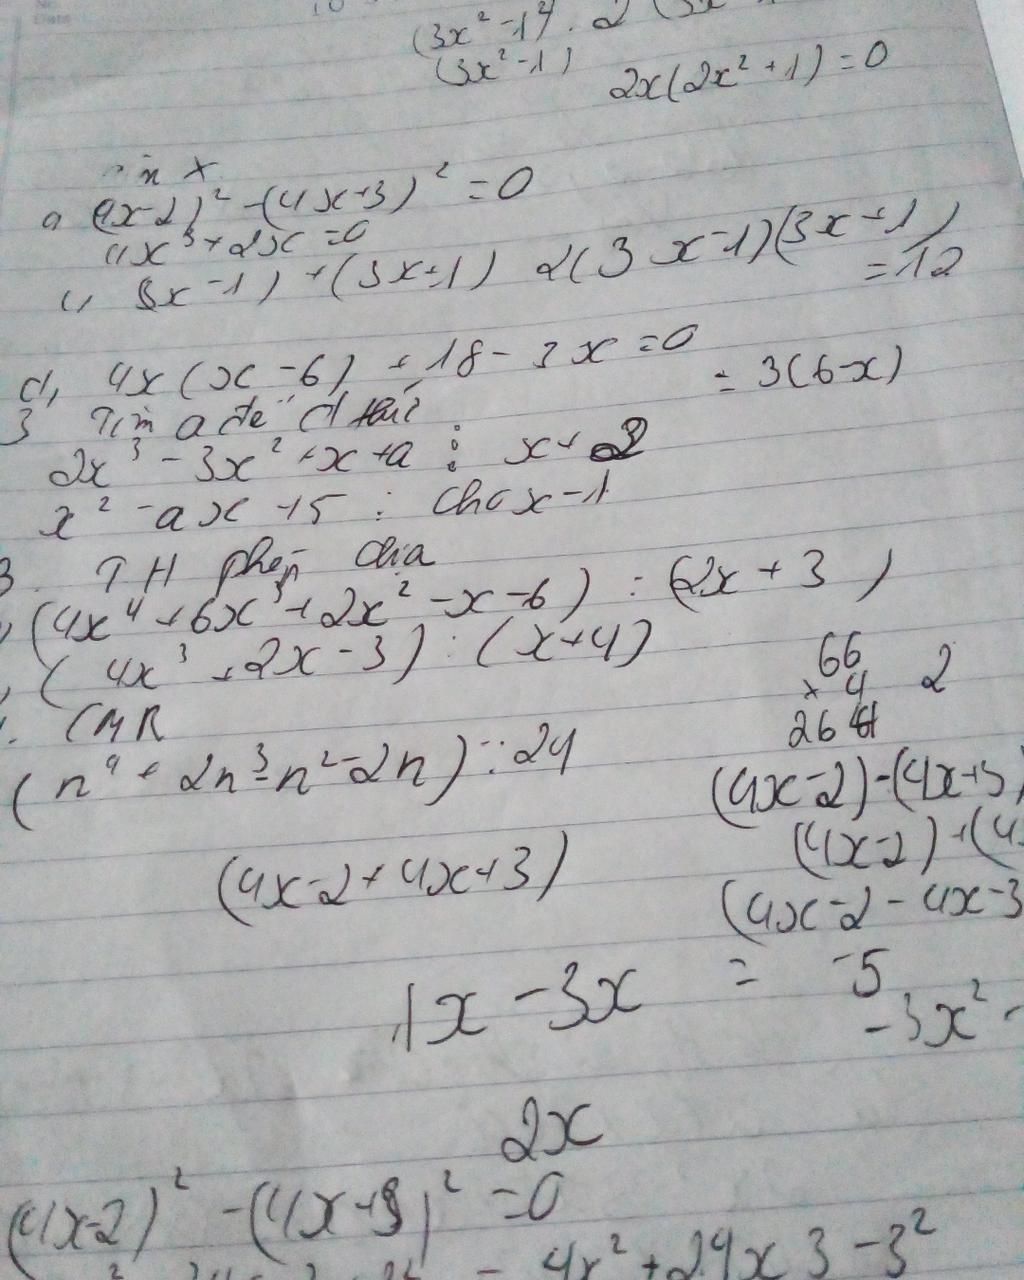 (3x² - 1)² . 2
(3x² - 1)
2x(2x² + 1) = 0
x
a (4x-2)² - (4x+3)² = 0
4x³ + 2x = 0
c, 3x - 1) + (3x+1) 2(3x-1)(3x+1)
= 12
d, 4x(x-6) + 18 - 3x = 0
= 3(6-x)
3 Tìm a để đ thức
2x³ - 3x² + x + a ⋮ x +
x² - ax + 5 : cho x - 1
3. TH phép chia
(4x⁴ + 6x³ + 2x² - x - 6) : (2x + 3)
(4x³ + 2x - 3) : (x+4)
66
x 4
264
2
. CMR
(n⁴ + 2n³ - n² - 2n) : 24
(4x-2) - (4x+3)
(4x-2) + (4
(4x-2 - 4x-3
(4x-2 + 4x+3)
1x - 3x = -5
-3x² -
2x
(4x-2)² - (4x+3)² = 0
- 4x² + 24x 3 - 3²